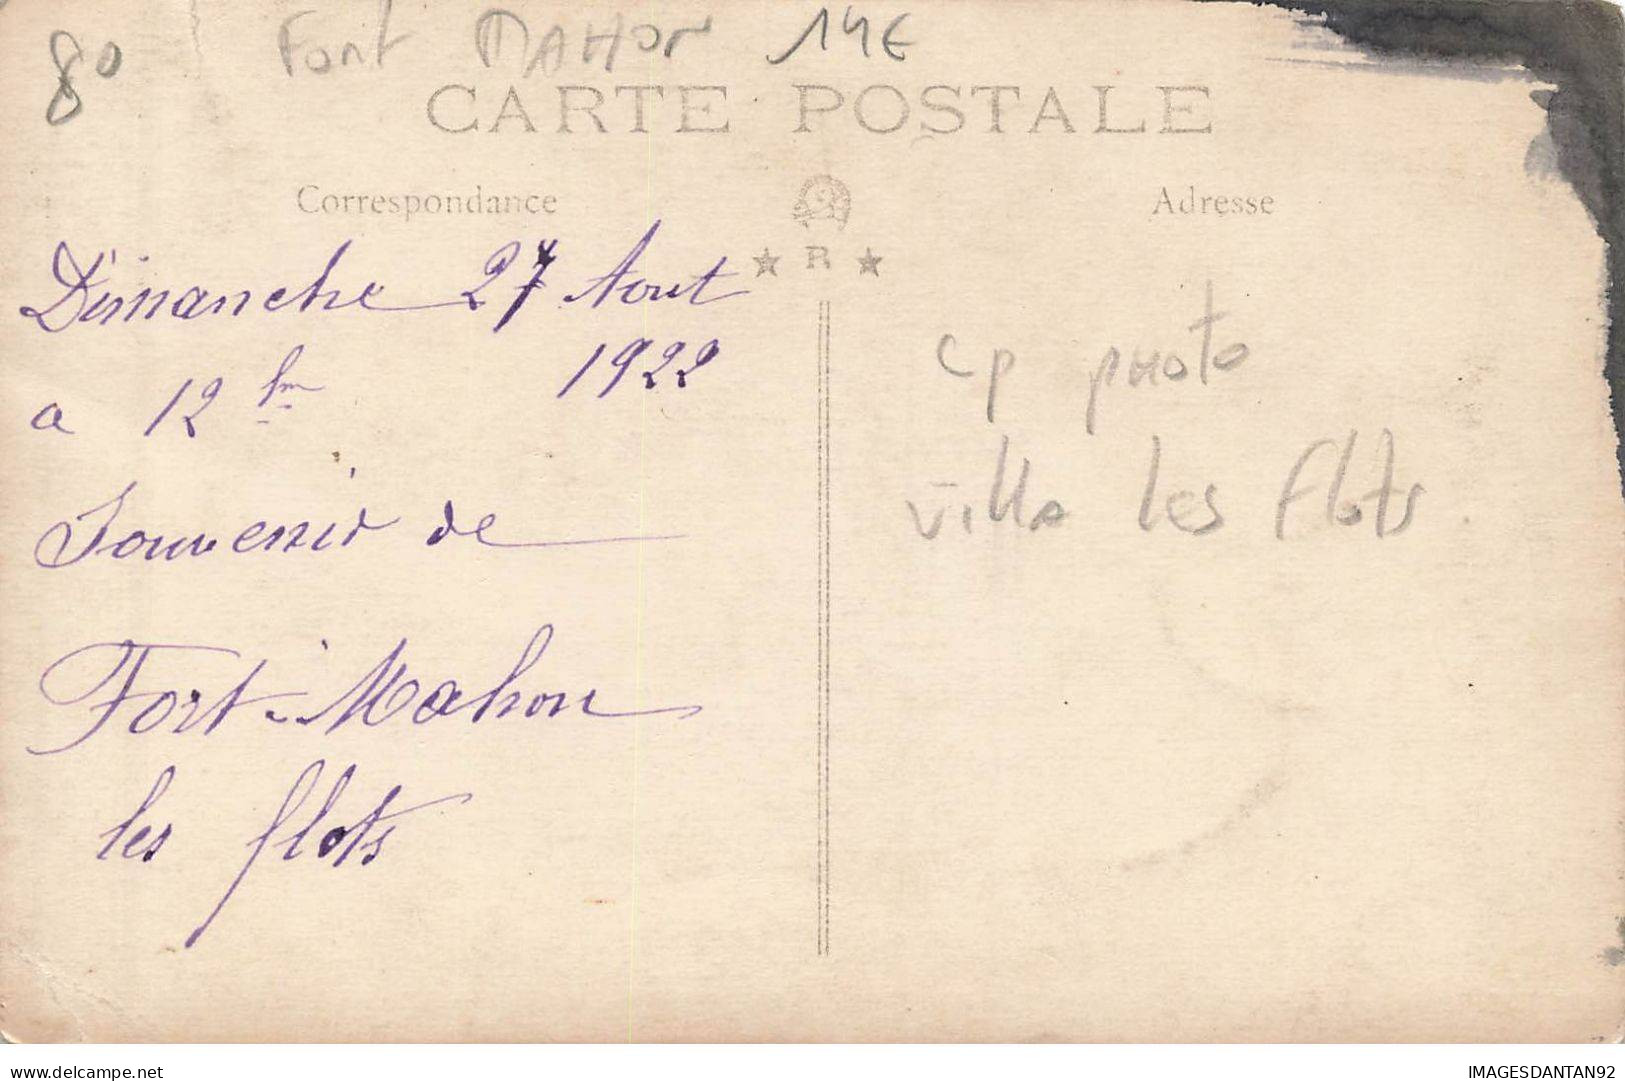 80 Fort MAHON 14€
CARTE POSTALE
Correspondance
Adresse
★ R ★
Dimanche 27 Aout
1922
a 12 hm
Souvenir de
Fort-Mahon
les flots
cp photo
villa les Flots
www.delcampe.net
IMAGESDANTAN92